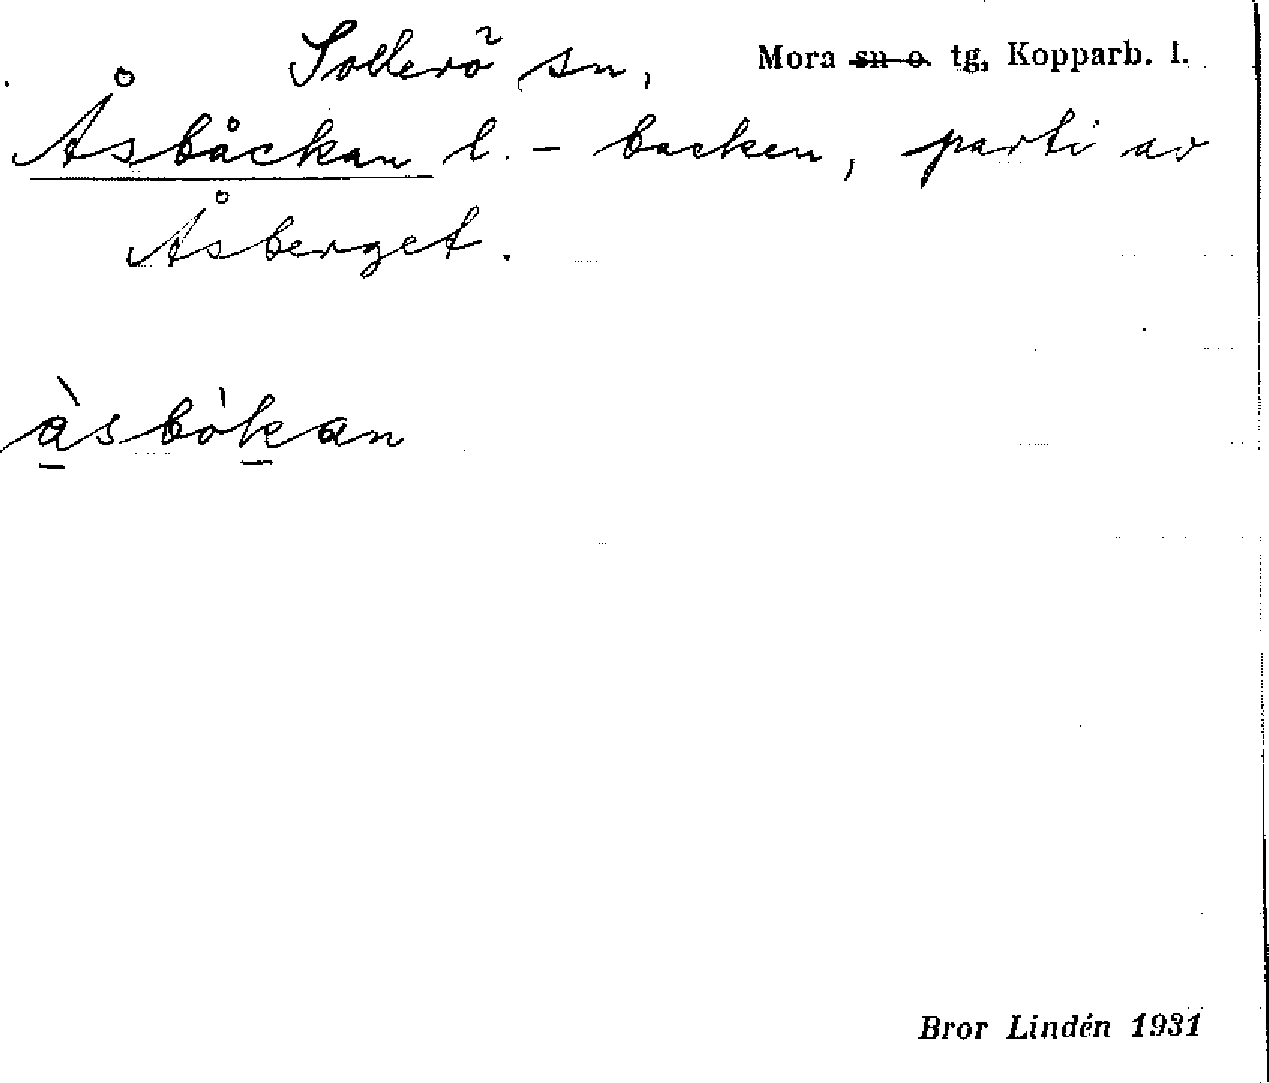 Sollerö sn, Mora sn o. tg, Kopparb. l.
Åsbåckan l. - backen, parti av
Åsberget.
àsbòkan
Bror Lindén 1931